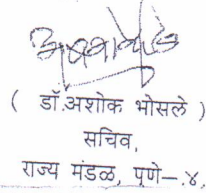 ( डॉ.अशोक भोसले )
सचिव,
राज्य मंडळ, पुणे-.४.